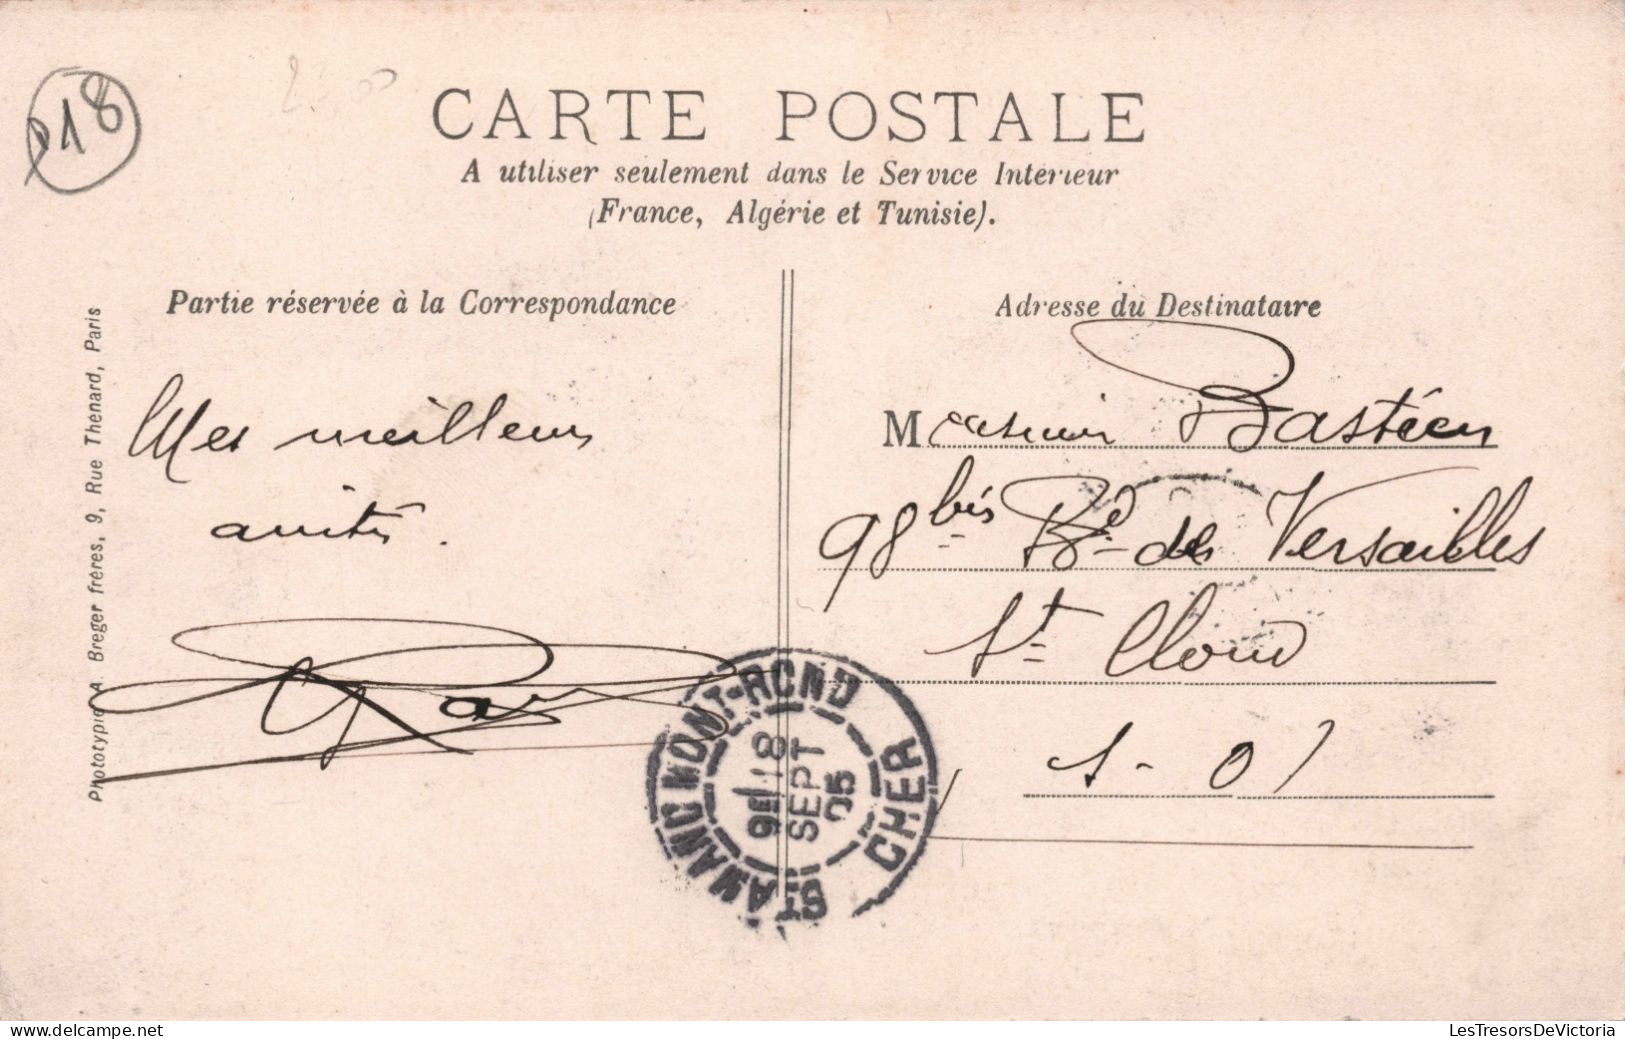 P18
CARTE POSTALE
A utiliser seulement dans le Service Intérieur
(France, Algérie et Tunisie).
Partie réservée à la Correspondance
Mes meilleurs
amitiés.
Phototypie A. Breger frères, 9, Rue Thénard, Paris
Adresse du Destinataire
M Bastien
98 bis Bd de Versailles
St Cloud
S-O
ST AMAND MONT-ROND
CHER
9E 18
SEPT
05
LesTresorsDeVictoria